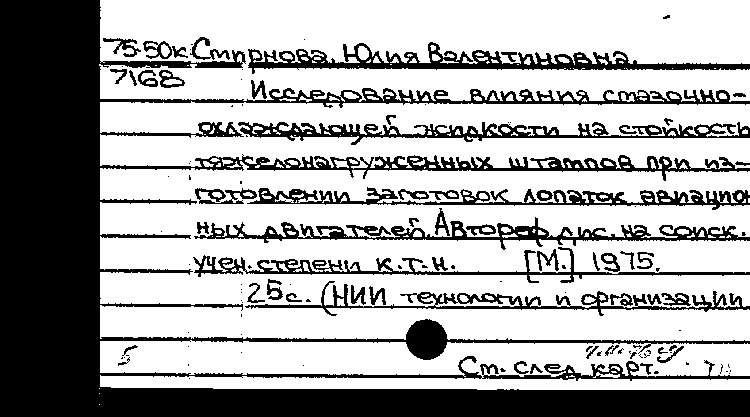 75-50к Смирнова, Юлия Валентиновна.
7168
Исследование влияния смазочно-
охлаждающей жидкости на стойкость
тяжелонагруженных штампов при из-
готовлении заготовок лопаток авиацион
ных двигателей. Автореф. дис. на соиск.
учен. степени к.т.н. [М.], 1975.
25с. (НИИ технологии и организации
5
См. след. карт.